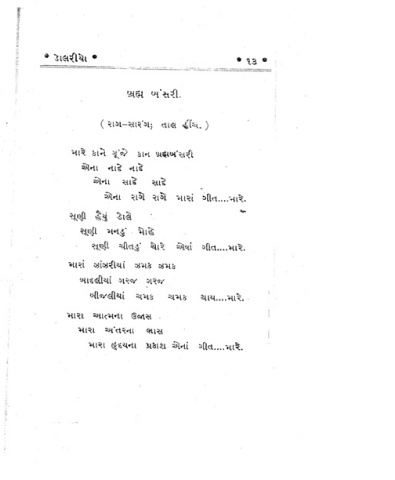 • ડોલરીયો •
• ૧૩ •
બ્રહ્મ બંસરી.
( રાગ–સારંગ; તાલ હીંચ. )
મારે કાને ગૂંજે કાન બ્રહ્મબંસરી
એના નાદે નાદે
એના સાદે સાદે
એના રાગે રાગે મારાં ગીત....મારે.
સૂણી હૈયું ડોલે
સૂણી મનડું મોહે
સૂણી ચીતડું ચોરે એવાં ગીત....મારે.
મારાં ઝાંઝરીયાં ઝમક ઝમક
બાદલીયાં ગરજ ગરજ
બીજલીયાં ચમક ચમક થાય....મારે.
મારા આત્મના ઉજાસ
મારા અંતરના ભાસ
મારા હૃદયના પ્રકાશ એનાં ગીત....મારે.